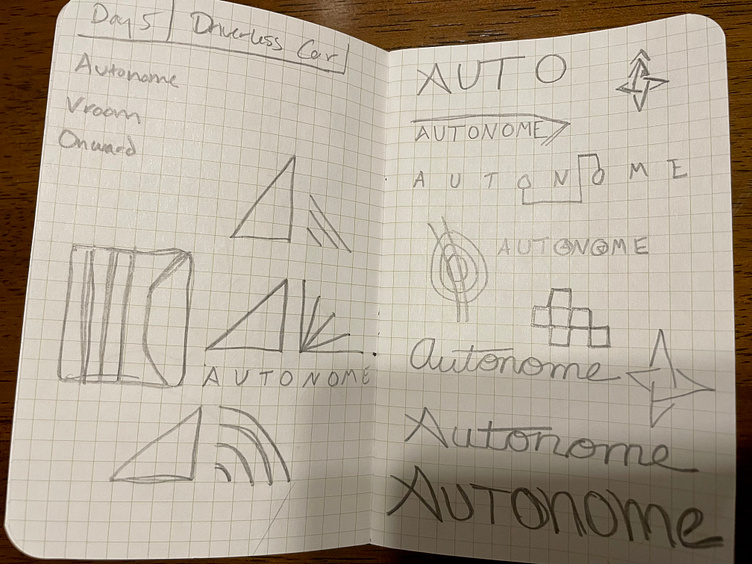 Day 5 | Driverless Car
Autonome
Vroom
Onward
AUTONOME
AUTO
AUTONOME
AUTONOME
AUTONOME
Autonome
Autonome
Autonome